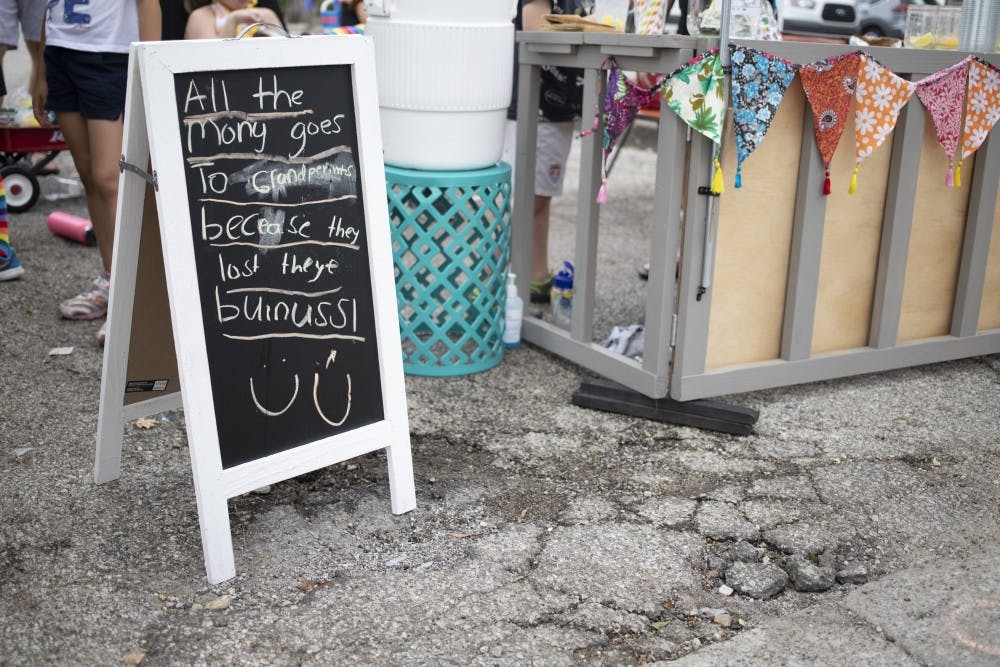 All the
Mony goes
To Grandperints
becease they
lost theye
buinussl